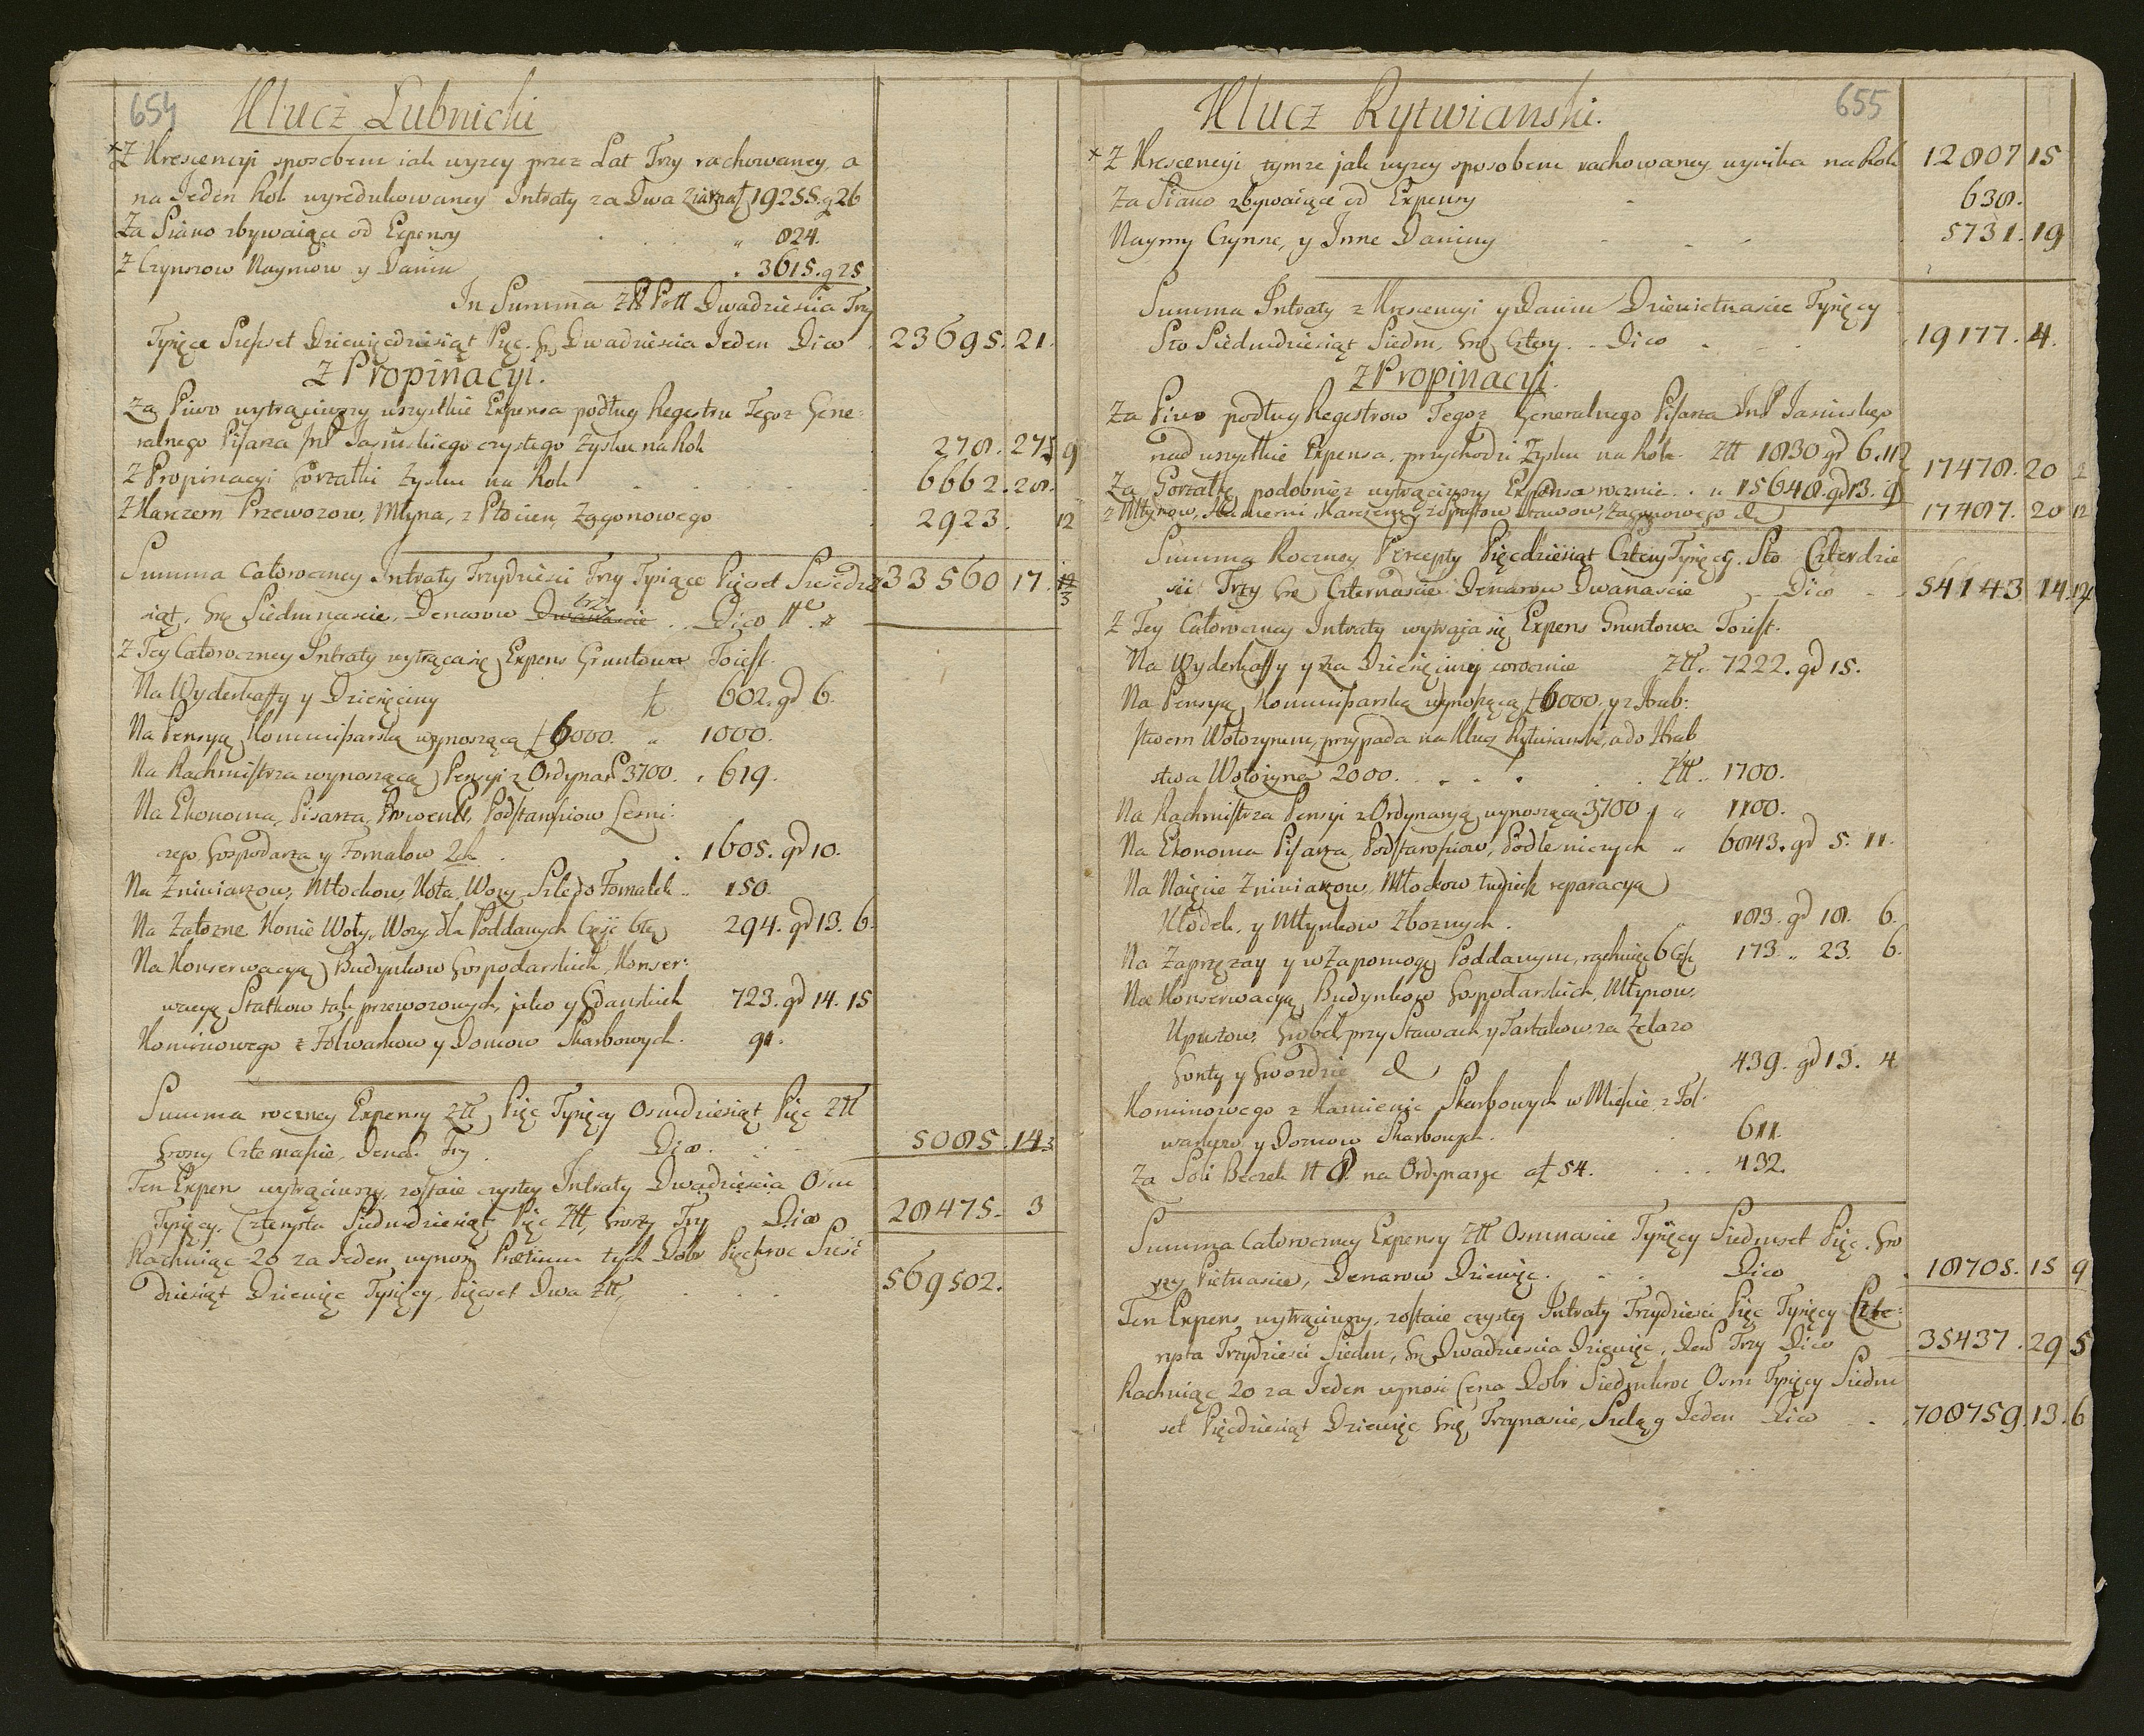 654
Klucz Łubnicki
+ Z Krescencyi sposobem iak wyzey przez Lat Trzy rachowaney, a
na Jeden Rok wyredukowaney Intraty za Dwa Ziarna ł 19255. g 26
Za Siano zbywaiące od Expensy " 824.
Z Czynszow Naymow y Danin . 3615. g 25
In Summa Złł Poll Dwadziescia Trzy
Tysiące Szescset Dziewięcdziesiąt Pięc. Gr Dwadziescia Jeden Dico . 23695. 21.
Z Propinacyi.
Za Piwo wytrąciwszy wszystkie Expensa podług Regestru Tegoz Gene:
ralnego Pisarza JmP Jasinskiego czystego Zysku na Rok 278. 27 9
Z Propinacyi Gorzałki Zysku na Rok 6662. 28.
Z Karczem Przewozow, Młyna, z Płocien, Zagonowego 2923. 12
Summa Całoroczney Intraty Trzydziesci Trzy Tysiące Pięcset Szescdzie 33560 17. 12 3
siąt, Gr Siedmnascie, Denarow Dwanascie trzy . . Dico
Z Tey Całoroczney Intraty wytrąca się Expens Gruntowa Toiest.
Na Wyderkaffy y Dziesięciny ł. 602. gd 6.
Na Pensyą Kommissarską wynoszącą ł 6000. " 1000.
Na Rachmistrza wynoszącą Pensyi z Ordynar 3700. . 619.
Na Ekonoma, Pisarza, Prowent, Podstarosciow Lesni:
czego, Gospodarza y Fornalow 2ch . 1605. gd 10.
Na Zniwiarzow, Młockow, Koła, Wozy, Szle do Fornalek .. 150.
Na Załozne Konie Woły, Wozy dla Poddanych Częsc 6tą 294. gd 13. 6.
Na Konserwacyą Budynkow Gospodarskich, Konser:
wacyą Statkow tak przewozowych, jako y Gdanskich 723. gd 14. 15
Kominowego z Folwarkow y Domow Skarbowych. 91.
Summa roczney Expensy Złł Pięc Tysięcy Osmdziesiąt Pięc Złł
Groszy Czternascie, Dena. Trzy . Dico. 5085. 14. 3
Ten Expens wytrąciwszy, zostaie czystey Intraty Dwadziescia Osm
Tysięcy, Czterysta Siedmdziesiąt Pięc Złł, Groszy Trzy Dico 28475. 3
Rachuiąc 20 za Jeden wynosi Pretium tych Dobr Pięckroc Szesc
dziesiąt Dziewięc Tysięcy, Pięcset Dwa Złł, . . . 569502.
655
Klucz Rytwianski.
+ Z Krescencyi tymze jak wyzey sposobem rachowaney wynika na Rok 12807 15
Za Siano zbywaiące od Expensy 638.
Naymy Czynsze, y Jnne Daniny 5731. 19
Summa Intraty z Krescencyi y Danin Dziewietnascie Tysięcy
Sto Siedmdziesiąt Siedm, Gr Cztery . . Dico . 19177. 4.
Z Propinacyi.
Za Piwo podług Regestrow Tegoz Generalnego Pisarza JmP Jasinskiego
nad wszystkie Expensa, przychodzi Zysku na Rok. Złł 1830 gd 6. 11
Za Gorzałkę podobniez wytrąciwszy Expensa rocznie . . " 15648. gd 13. 9 17478. 20 2
z Młynow, Kuzierni, Karczem y z Spustow Stawow, Zagonowego & 17487. 20 12
Summa Roczney Percepty Pięcdziesiąt Cztery Tysięcy. Sto Czterdzie
sci Trzy Gr Czternascie Denarow Dwanascie . Dico . 54143 14. 12
Z Tey Całoroczney Intraty wytrąca się Expens Gruntowa Toiest.
Na Wyderkaffy y za Dziesięciny corocznie Złł.. 7222. gd 15.
Na Pensyą Kommissarską wynoszącą ł 6000. y z Hrab:
stwem Wołozynem, przypada na Klucz Rytwianski, a do Hrab
stwa Wołozyna 2000. . . . Złł.. 1700.
Na Rachmistrza Pensyi z Ordynaryą wynoszącą 3700 " 1100.
Na Ekonoma Pisarza, Podstarosciow, Podlesniczych " 6043. gd 5. 11.
Na Naięcie Zniwiarzow, Młockow tudziesz reparacyą
Kłodek, y Młynkow Zboznych . " 183. gd 18. 6.
Na Zaprzęzay y w Zapomogę Poddanym, rachuiąc 6 Częsc 173. .. 23. 6.
Na Konserwacyą Budynkow Gospodarskich, Młynow,
Upustow, Grobel przy Stawach, y Tartakow, za Zelazo
Gonty y Gwozdzie & 439. gd 13. 4
Kominowego z Kamienic Skarbowych w Miescie, z Fol:
warkow y Domow Skarbowych. . 611.
Za Soli Beczek N 8. na Ordynarye a ł 54. . . . 432.
Summa Całoroczney Expensy Złł Osmnascie Tysięcy Siedmset Pięc. Gro
szy Pietnascie, Denarow Dziewięc. . . Dico . 18705. 15 9
Ten Expens wytrąciwszy, zostaie czystey Intraty Trzydziesci Pięc Tysięcy Czte:
rysta Trzydziesci Siedm, Gr Dwadziescia Dziewięc, Den Trzy Dico 35437. 29 5
Rachuiąc 20 za Jeden wynosi Cena Dobr Siedmkroc Osm Tysięcy Siedm
set Pięcdziesiąt Dziewięc Gr Trzynascie, Szeląg Jeden Dico . . 708759. 13. 6